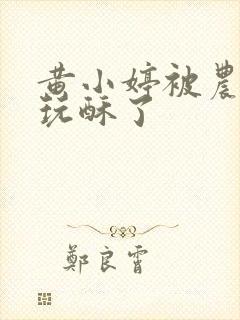 黄小婷被農
玩酥了
鄭良霄